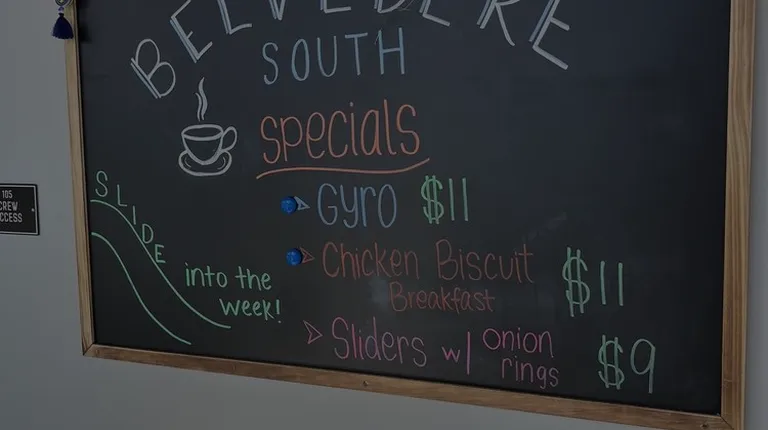 BELVEDERE
SOUTH
specials
Gyro $11
Chicken Biscuit $11
Breakfast
Sliders w/ onion rings $9
SLIDE
into the
week!
105
CREW
ACCESS